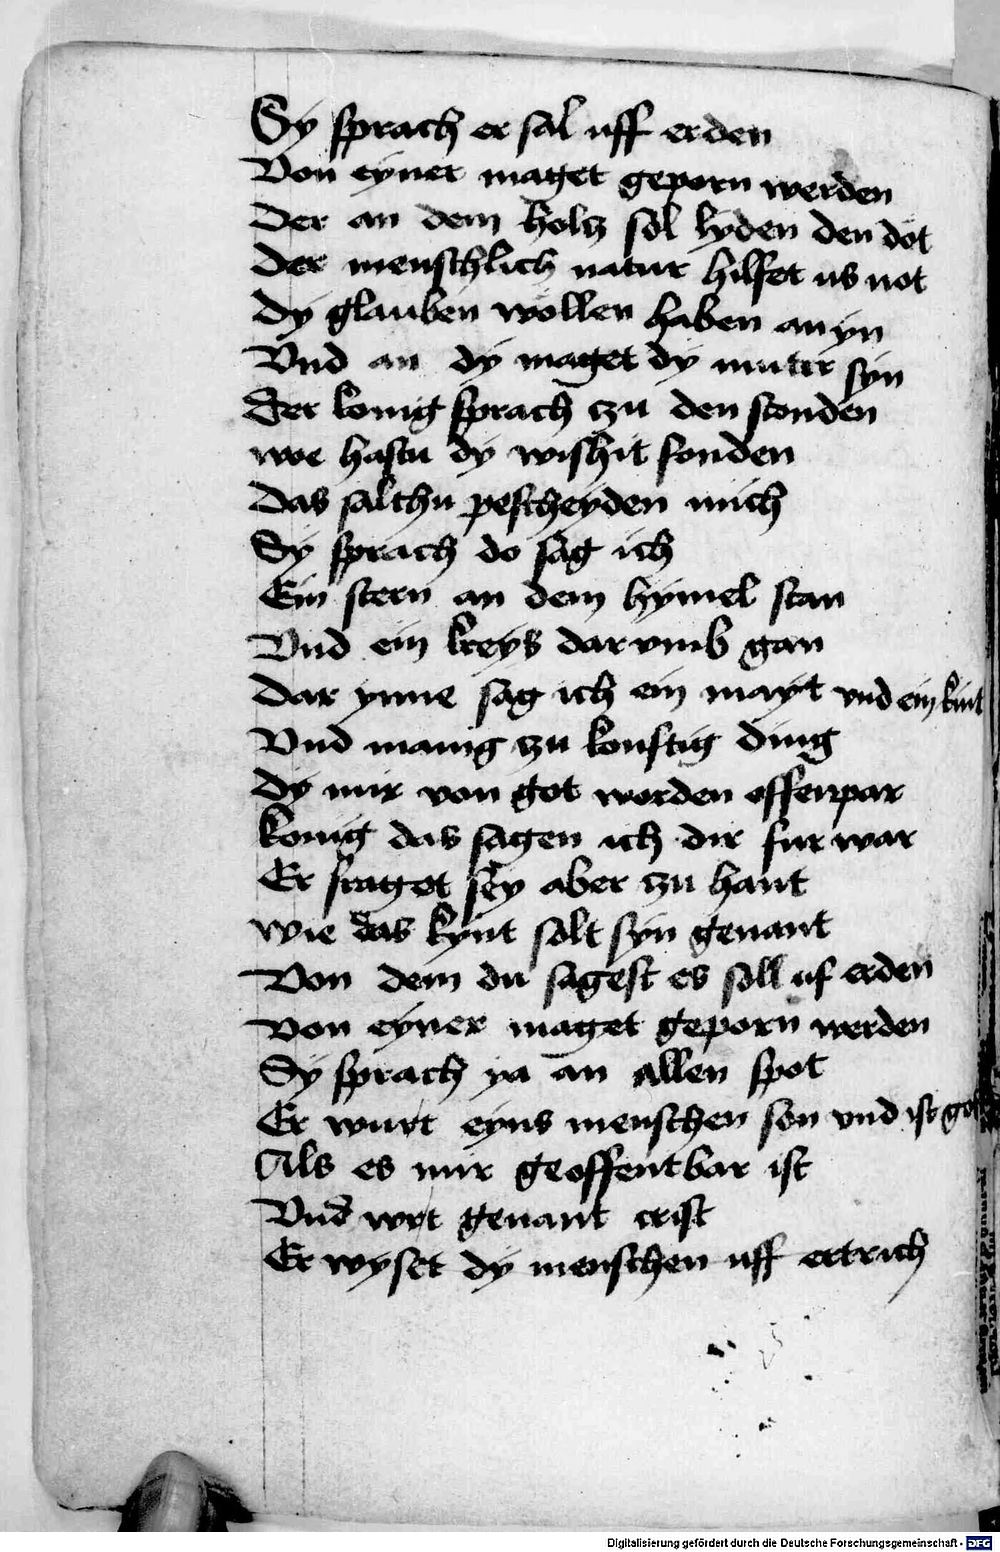 Sy sprach er sal uff erden
Von eyner maget geporn werden
Der an dem holtz sol lyden den dot
Der menschlich natur hilfet us not
Dy glauben wollen haben an yn
Vnd an dy maget dy muter syn
Der konig sprach zu den stonden
wie hastu dy wishit fonden
Das salthu pescheyden mich
Sy sprach do sag ich
Ein stern an dem hymel stan
Vnd ein kreys dar vmb gan
Dar ynne sag ich ein mayt vnd ein kint
Vnd manig zu konftig ding
Dy mir von got worden offenpar
konig das sagen ich dir fur war
Er fraget sey aber zu hant
wie das kynt solt syn genant
Von dem du sagest es soll uf erden
Von eyner maget geporn werden
Sy sprach ya an allen spot
Er wurt eyns menschen son vnd ist got
Als es mir geoffentbar ist
Vnd wrt genant crist
Er wyset dy menschen uff ertrich
Digitalisierung gefördert durch die Deutsche Forschungsgemeinschaft - DFG